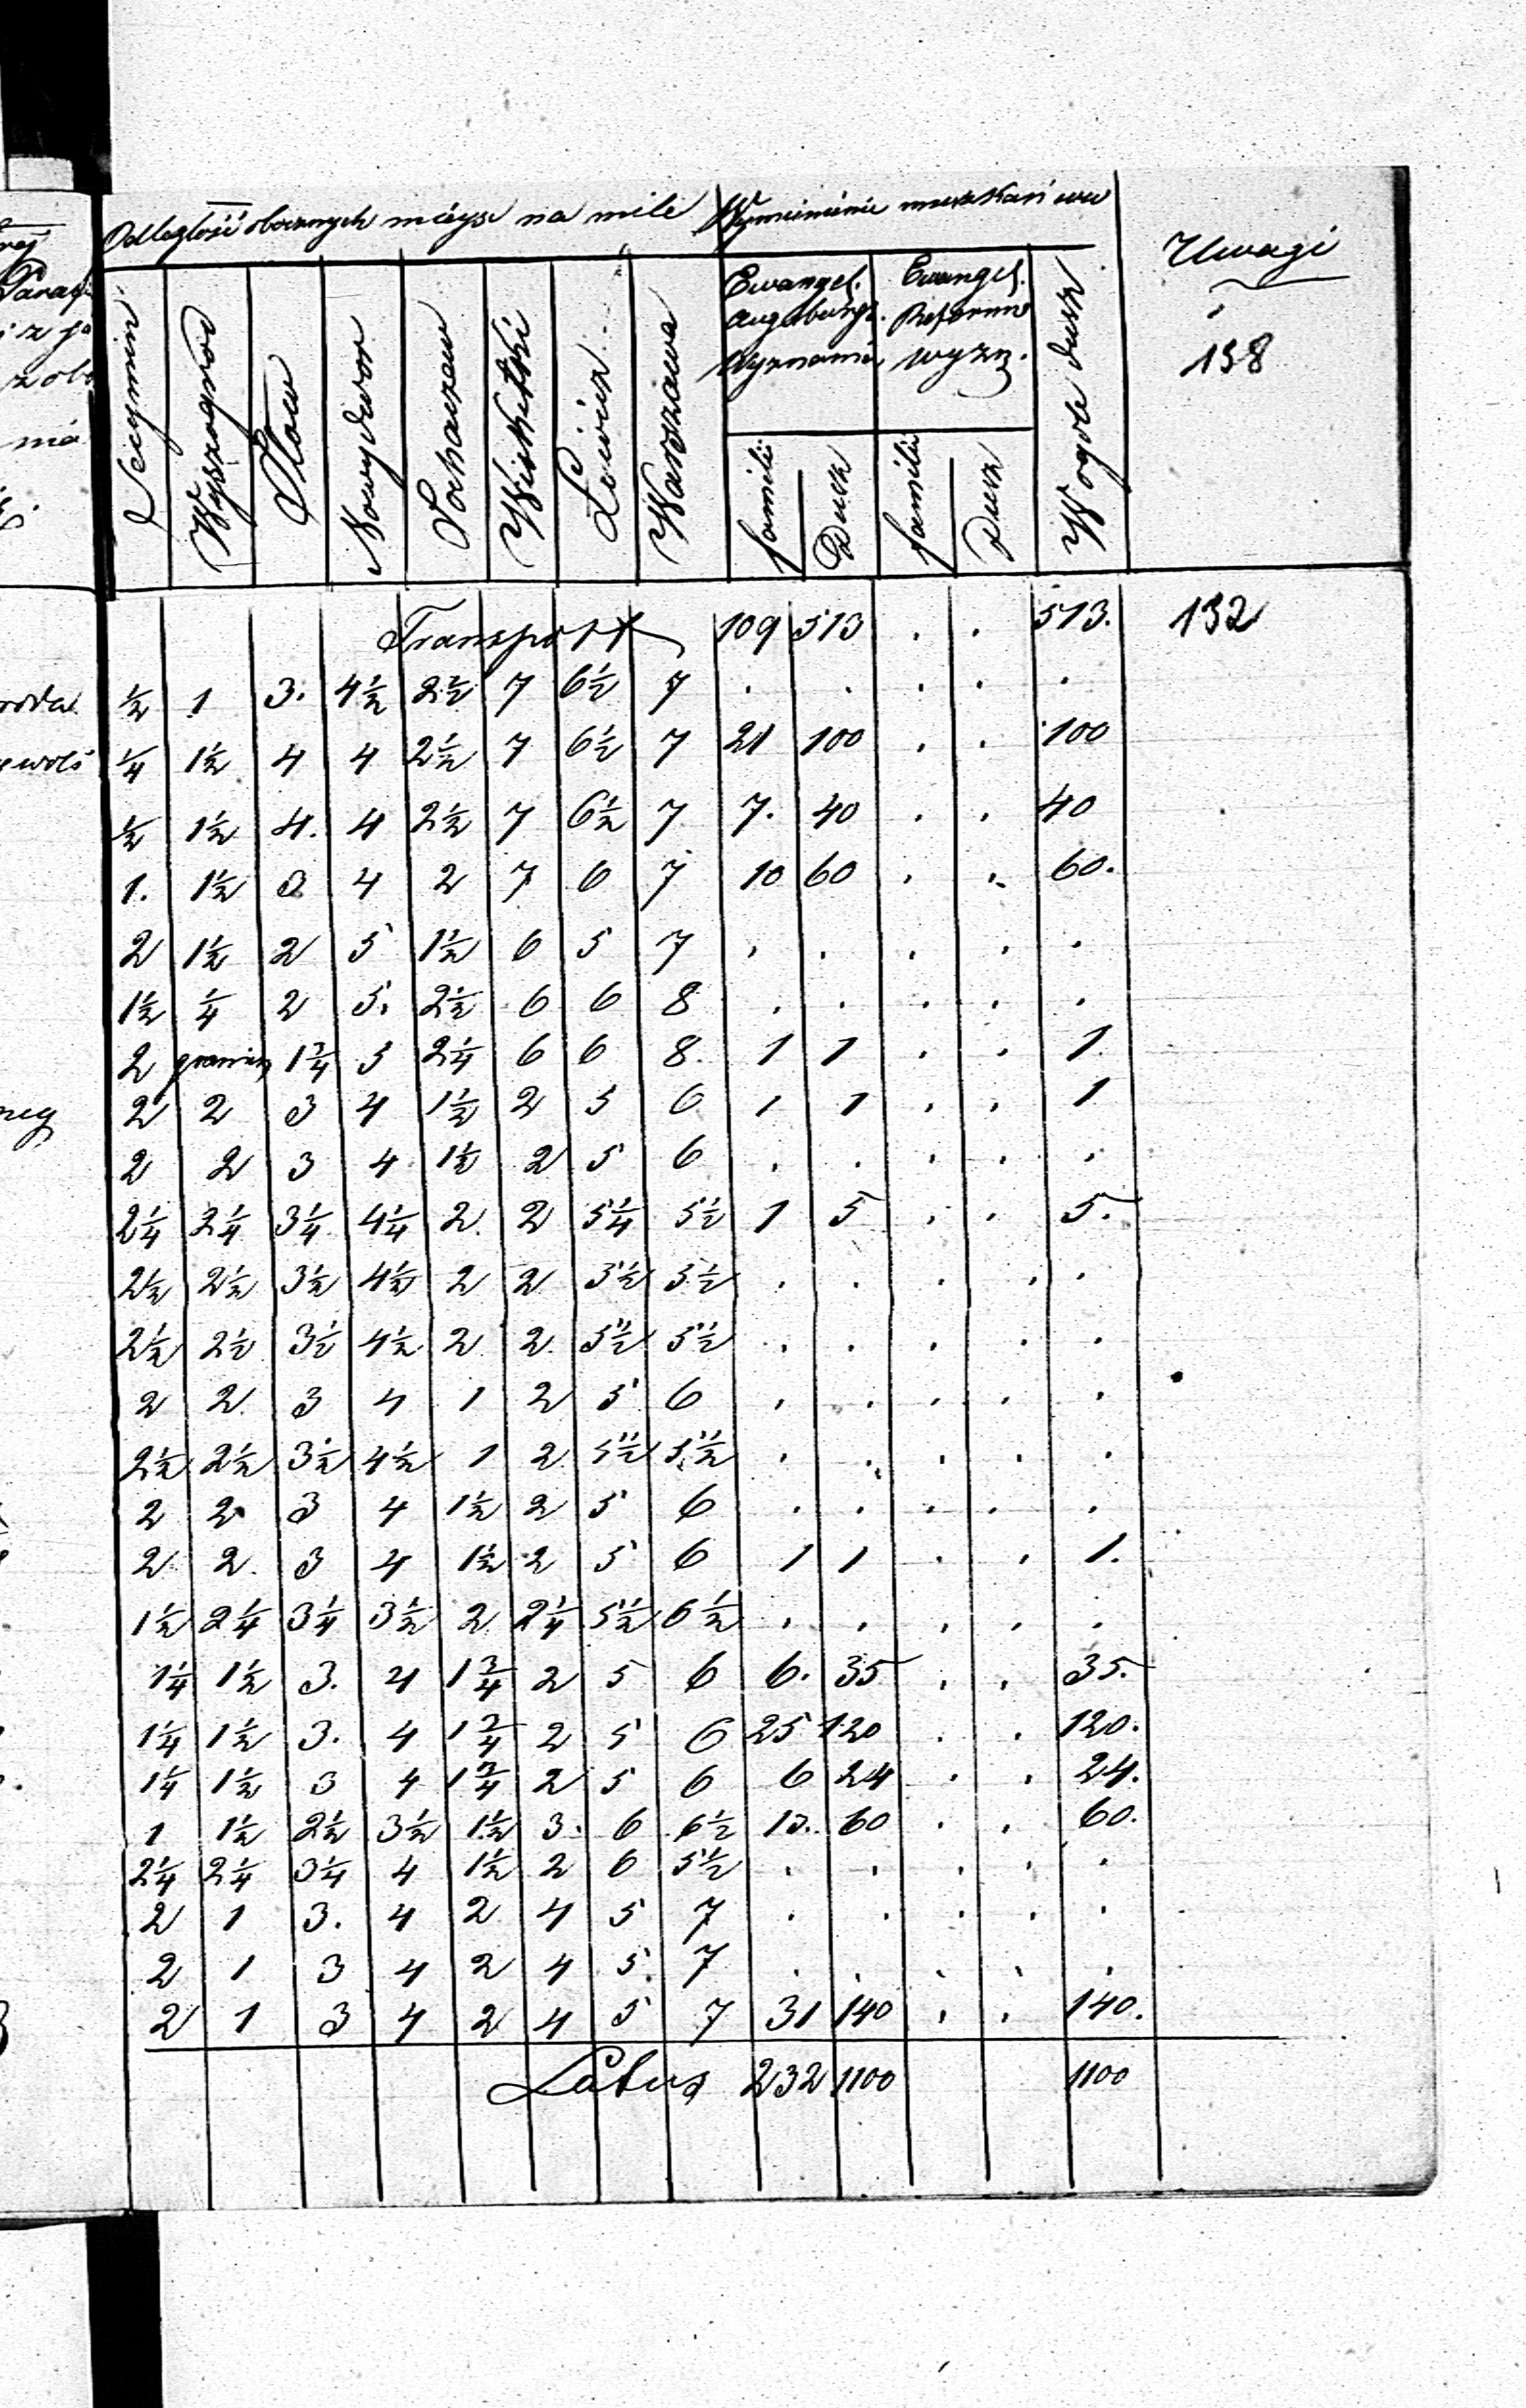 Odległość obocznych mieysc na mile Wymienienie mieszkańców
Uwagi
Secymin Wyszogrod Iłow Nowydwor Sochaczew Wiskitki Łowicz Warszawa
Ewangel. Augsburgs. Wyznania
Ewangel. Reform wyzn.
familii Dusz familii Dusz Wogóle dusz
138
Transport 109 513 . . 513. 132
½ 1 3. 4½ 2½ 7 6½ 7 . . . . .
¼ 1½ 4 4 2½ 7 6½ 7 21 100 . . 100
½ 1½ 4. 4 2½ 7 6½ 7 7. 40 . . 40
1. 1½ 3 4 2 7 6 7 10 60 . . 60.
2 1½ 2 5 1½ 6 5 7 . . . . .
1½ ¼ 2 5. 2½ 6 6 8 . . . . .
2 granicz 1¾ 5 2¼ 6 6 8. 1 1 . . 1.
2 2 3 4 1½ 2 5 6 1 1 . . 1
2 2 3 4 1½ 2 5 6 . . . . .
2¼ 2¼ 3¼ 4¼ 2. 2 5¼ 5½ 1 5 . . 5.
2½ 2½ 3½ 4½ 2 2 5½ 5½ . . . . .
2½ 2½ 3½ 4½ 2 2. 5½ 5½ . . . . .
2 2. 3 4 1 2 5 6 . . . . .
2½ 2½ 3½ 4½ 1 2 5½ 5½ . . . . .
2 2 3 4 1½ 2 5 6 . . . . .
2 2. 3 4 1½ 2 5 6 1 1 . . 1.
1½ 2¼ 3¼ 3½ 2 2¼ 5½ 6½ . . . . .
1¼ 1½ 3. 4 1¾ 2 5 6 6. 35 . . 35.
1¼ 1½ 3. 4 1¾ 2 5 6 25 120 . . 120.
1¼ 1½ 3 4 1¾ 2 5 6 6 24 . . 24.
1 1½ 2½ 3½ 1½ 3. 6 6½ 13. 60 . . 60.
2¼ 2¼ 3¼ 4 1½ 2 6 5½ . . . . .
2 1 3. 4 2 4 5 7 . . . . .
2 1 3 4 2 4 5. 7 . . . . .
2 1 3 4 2 4 5 7 31 140 . . 140.
Latus 232 1100 1100